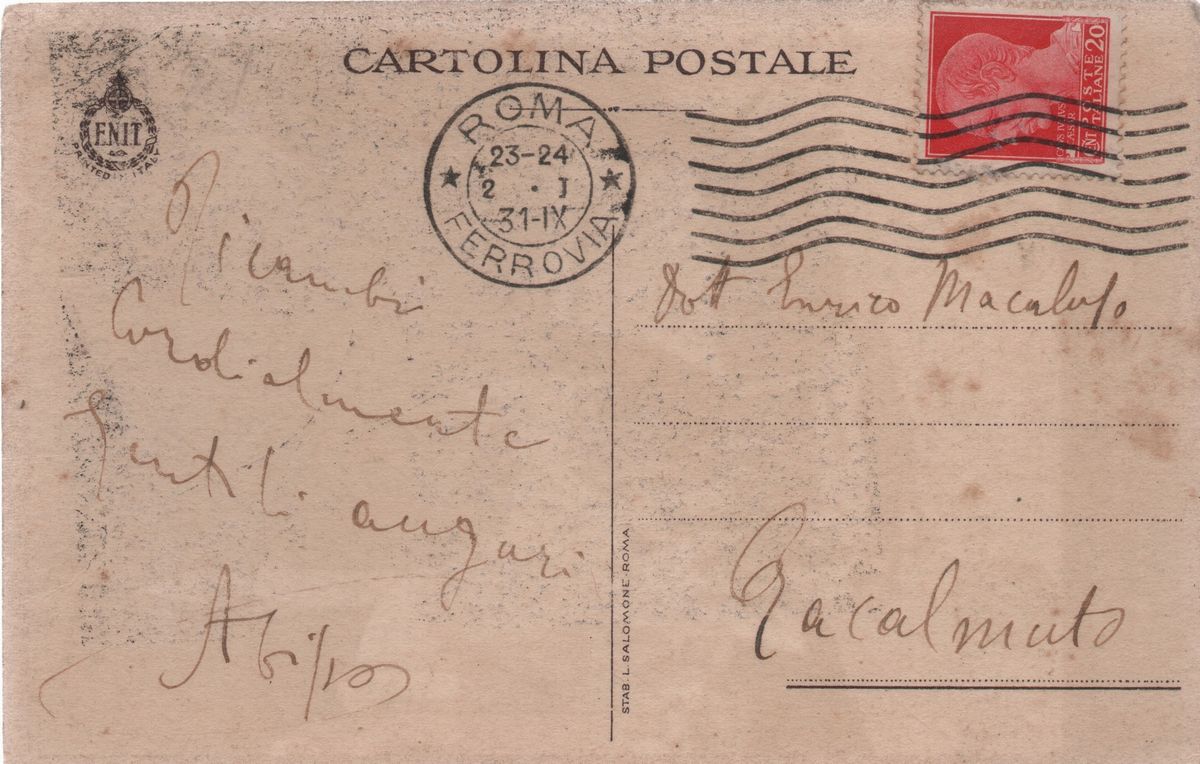 CARTOLINA POSTALE
ENIT
PRINTED IN ITALY
ROMA
23-24
2 · I
31-IX
FERROVIA
POSTE ITALIANE 20
CENT
CAIVS IVLIVS
CAESAR
Ricambi
Cordialmente
gentili auguri
Dott Enrico Macaluso
Racalmuto
STAB. L. SALOMONE-ROMA